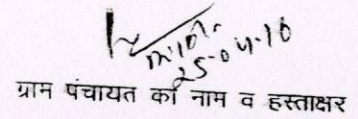 25-04-10
ग्राम पंचायत का नाम व हस्ताक्षर